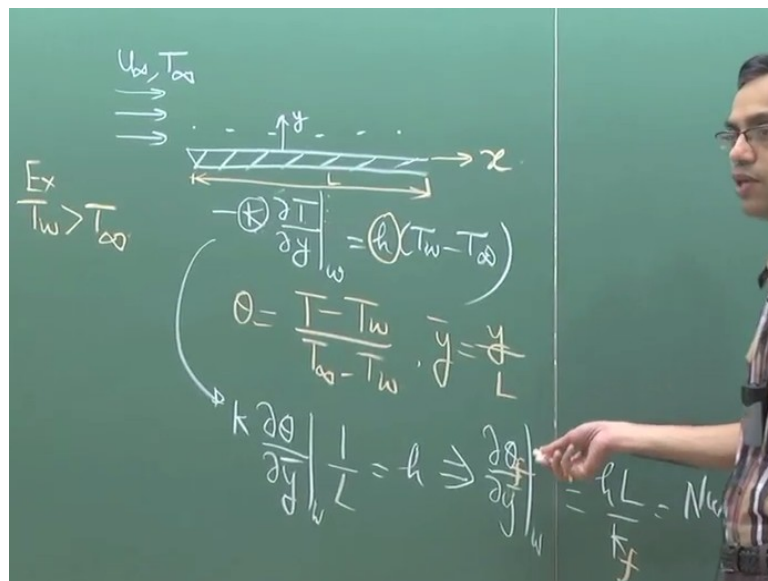 u∞, T∞
y
x
L
Ex
Tw > T∞
-k ∂T/∂y |w = h (Tw - T∞)
θ = (T - Tw)/(T∞ - Tw) . ȳ = y/L
k ∂θ/∂ȳ |w 1/L = h ⇒ ∂θf/∂ȳ |w = hL/kf = Nu